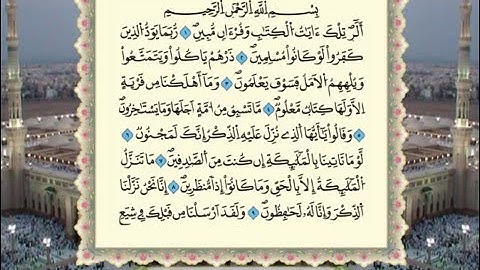 بِسْمِ اللَّهِ الرَّحْمَٰنِ الرَّحِيمِ
أَلَٓرۖ تِلْكَ ءَايَٰتُ الْكِتَٰبِ وَقُرْءَانٖ مُّبِينٖۖ ١ رُّبَمَا يَوَدُّ الذِينَ
كَفَرُواْ لَوْ كَانُواْ مُسْلِمِينَۖ ٢ ذَرْهُمْ يَاكُلُواْ وَيَتَمَتَّعُواْ
وَيُلْهِهِمُ الَامَلُ فَسَوْفَ يَعْلَمُونَۖ ٣ وَمَآ أَهْلَكْنَا مِن قَرْيَةٍ
اِلَّا وَلَهَا كِتَابٞ مَّعْلُومٞۖ ٤ مَّا تَسْبِقُ مِنُ امَّةٍ اَجَلَهَا وَمَا يَسْتَٰخِرُونَۖ
٥ وَقَالُواْ يَٰٓأَيُّهَا الذِے نُزِّلَ عَلَيْهِ الذِّكْرُ إِنَّكَ لَمَجْنُونٞ ٦
لَّوْ مَا تَاتِينَا بِالْمَلَٰٓئِكَةِ إِن كُنتَ مِنَ الصَّٰدِقِينَۖ ٧ مَا تَنَزَّلُ
الْمَلَٰٓئِكَةُ إِلَّا بِالْحَقِّ وَمَا كَانُوٓاْ إِذاٗ مُّنظَرِينَۖ ٨ إِنَّا نَحْنُ نَزَّلْنَا
الذِّكْرَ وَإِنَّا لَهُۥ لَحَٰفِظُونَۖ ٩ وَلَقَدَ اَرْسَلْنَا مِن قَبْلِكَ فِے شِيَعِ